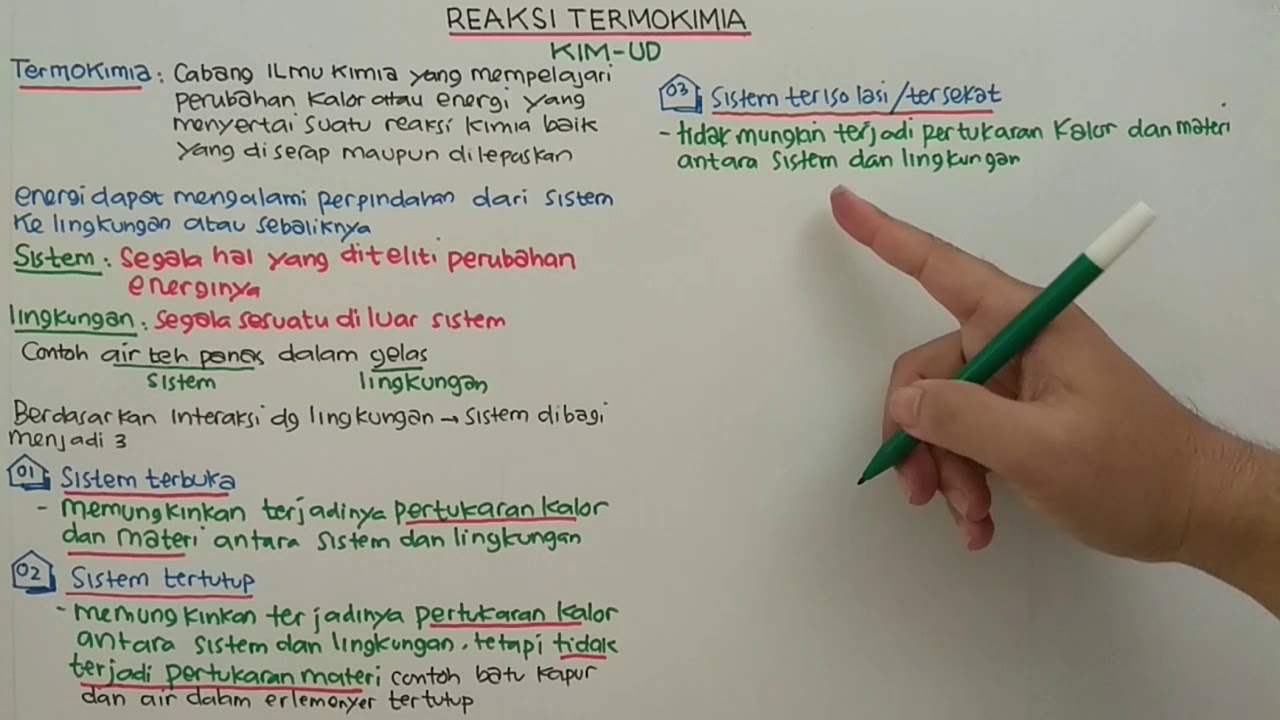 REAKSI TERMOKIMIA
KIM-UD
Termokimia : Cabang ILMU KIMIA yang mempelajari
perubahan Kalor atau energi yang
menyertai suatu reaksi kimia baik
yang diserap maupun dilepaskan
energi dapat mengalami perpindahan dari sistem
Ke lingkungan atau sebaliknya
Sistem : Segala hal yang diteliti perubahan
energinya
lingkungan : Segala sesuatu di luar sistem
Contoh air teh panas dalam gelas
sistem lingkungan
Berdasarkan Interaksi dg lingkungan → sistem dibagi
menjadi 3
01 Sistem terbuka
- memungkinkan terjadinya pertukaran kalor
dan materi antara sistem dan lingkungan
02 Sistem tertutup
- memungkinkan terjadinya pertukaran kalor
antara sistem dan lingkungan, tetapi tidak
terjadi pertukaran materi contoh batu kapur
dan air dalam erlemenyer tertutup
03 Sistem terisolasi/tersekat
- tidak mungkin terjadi pertukaran Kalor dan materi
antara sistem dan lingkungan